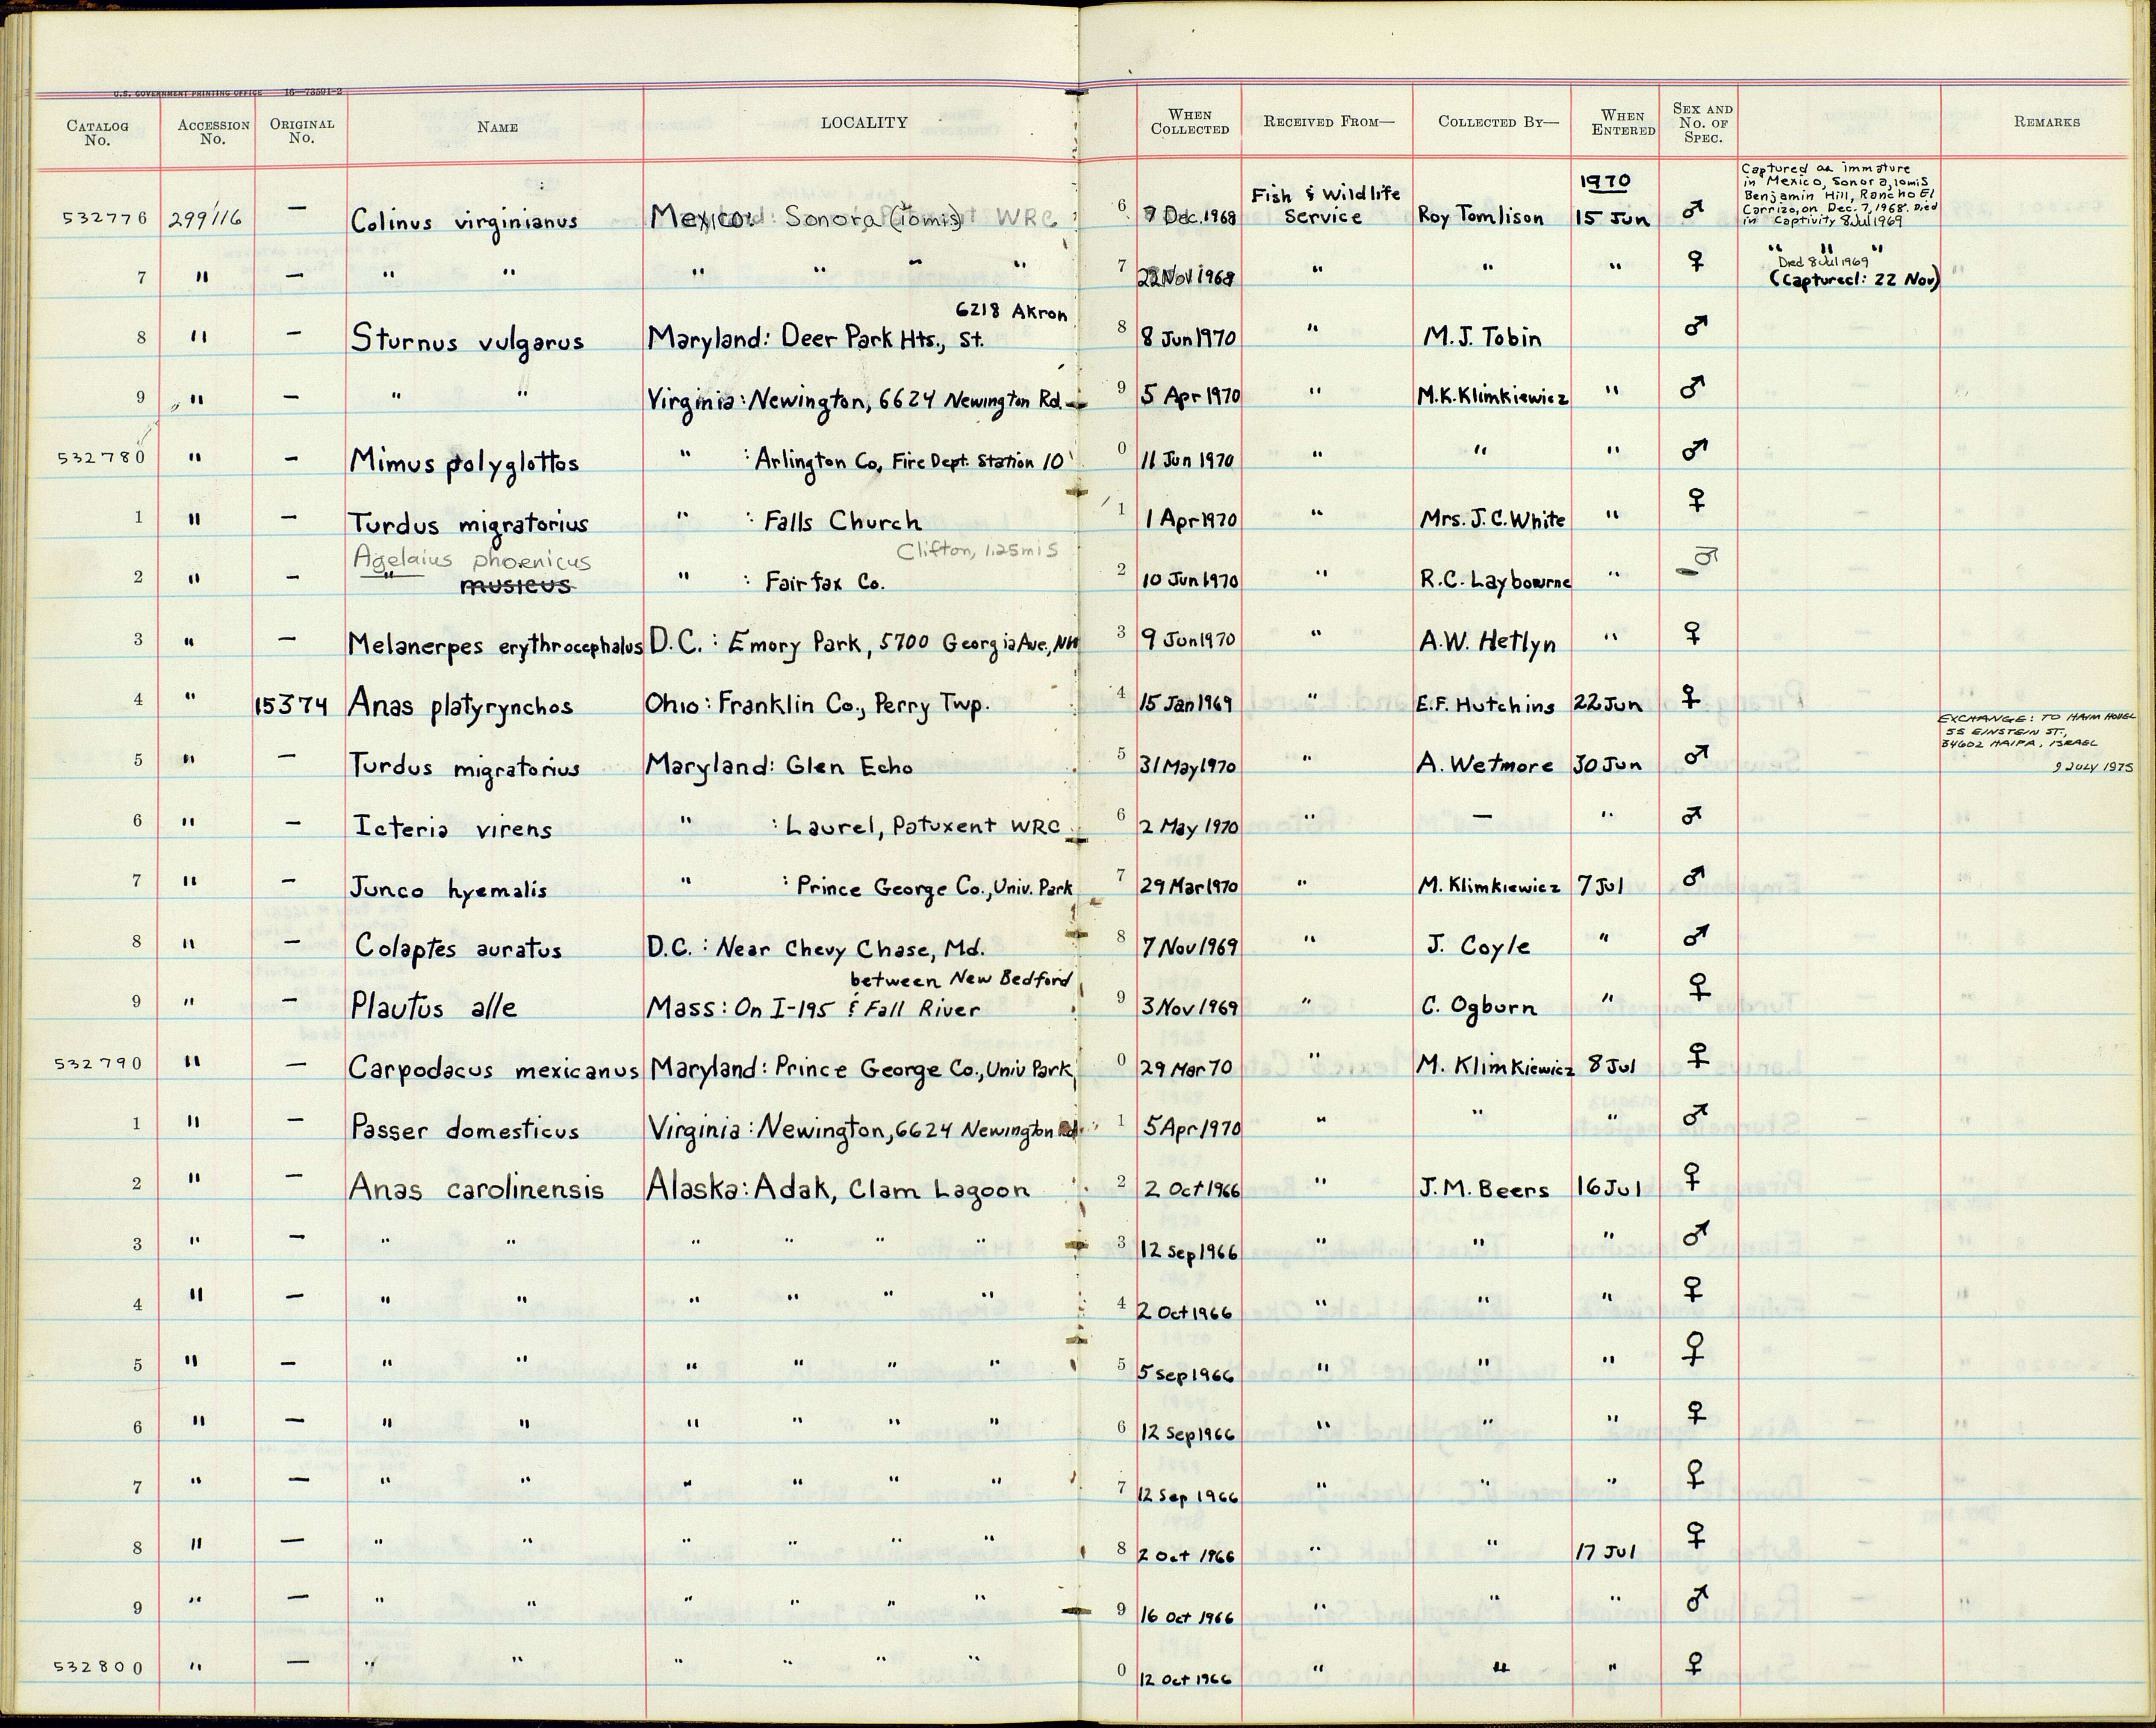 U.S. GOVERNMENT PRINTING OFFICE 16—73591-2
CATALOG No. ACCESSION No. ORIGINAL No. NAME LOCALITY WHEN COLLECTED RECEIVED FROM— COLLECTED BY— WHEN ENTERED SEX AND No. OF SPEC. REMARKS
532776 299116 — Colinus virginianus Mexico: Sonora (10miS) WRC 6 7 Dec. 1968 Fish & Wildlife Service Roy Tomlison 1970 15 Jun ♂ Captured as immature in Mexico, Sonora, 10miS Benjamin Hill, Rancho El Carrizo, on Dec. 7, 1968. Died in Captivity 8 Jul 1969
7 " — " " " " " " 7 22 Nov 1968 " " " ♀ " " " Died 8 Jul 1969 (Captured: 22 Nov)
8 " — Sturnus vulgarus Maryland: Deer Park Hts., 6218 Akron St. 8 8 Jun 1970 " M.J. Tobin ♂
9 " — " " Virginia: Newington, 6624 Newington Rd. 9 5 Apr 1970 " M.K. Klimkiewicz " ♂
532780 " — Mimus polyglottos " : Arlington Co, Fire Dept. Station 10 0 11 Jun 1970 " " " ♂
1 " — Turdus migratorius " : Falls Church 1 1 Apr 1970 " Mrs. J.C. White " ♀
2 " — Agelaius phoenicus " musicus " : Fairfax Co. Clifton, 1.25mi S 2 10 Jun 1970 " R.C. Laybourne " ♂
3 " — Melanerpes erythrocephalus D.C.: Emory Park, 5700 Georgia Ave., NW 3 9 Jun 1970 " A.W. Hetlyn " ♀
4 " 15374 Anas platyrynchos Ohio: Franklin Co., Perry Twp. 4 15 Jan 1969 " E.F. Hutchins 22 Jun ♀
5 " — Turdus migratorius Maryland: Glen Echo 5 31 May 1970 " A. Wetmore 30 Jun ♂ EXCHANGE: TO HAIM 55 EINSTEIN ST., 34602 HAIFA, ISRAEL 9 JULY 1975
6 " — Icteria virens " : Laurel, Patuxent WRC 6 2 May 1970 " — " ♂
7 " — Junco hyemalis " : Prince George Co., Univ. Park 7 29 Mar 1970 " M. Klimkiewicz 7 Jul ♂
8 " — Colaptes auratus D.C.: Near Chevy Chase, Md. 8 7 Nov 1969 " J. Coyle " ♂
9 " — Plautus alle Mass: On I-195 between New Bedford & Fall River 9 3 Nov 1969 " C. Ogburn " ♀
532790 " — Carpodacus mexicanus Maryland: Prince George Co., Univ Park 0 29 Mar 70 " M. Klimkiewicz 8 Jul ♀
1 " — Passer domesticus Virginia: Newington, 6624 Newington Rd. 1 5 Apr 1970 " " " ♂
2 " — Anas carolinensis Alaska: Adak, Clam Lagoon 2 2 Oct 1966 " J.M. Beers 16 Jul ♀
3 " — " " " " " " 3 12 Sep 1966 " " " ♂
4 " — " " " " " " 4 2 Oct 1966 " " " ♀
5 " — " " " " " " 5 5 Sep 1966 " " " ♀
6 " — " " " " " " 6 12 Sep 1966 " " " ♀
7 " — " " " " " " 7 12 Sep 1966 " " " ♀
8 " — " " " " " " 8 2 Oct 1966 " " 17 Jul ♀
9 " — " " " " " " 9 16 Oct 1966 " " " ♂
532800 " — " " " " " " 0 12 Oct 1966 " " " ♀